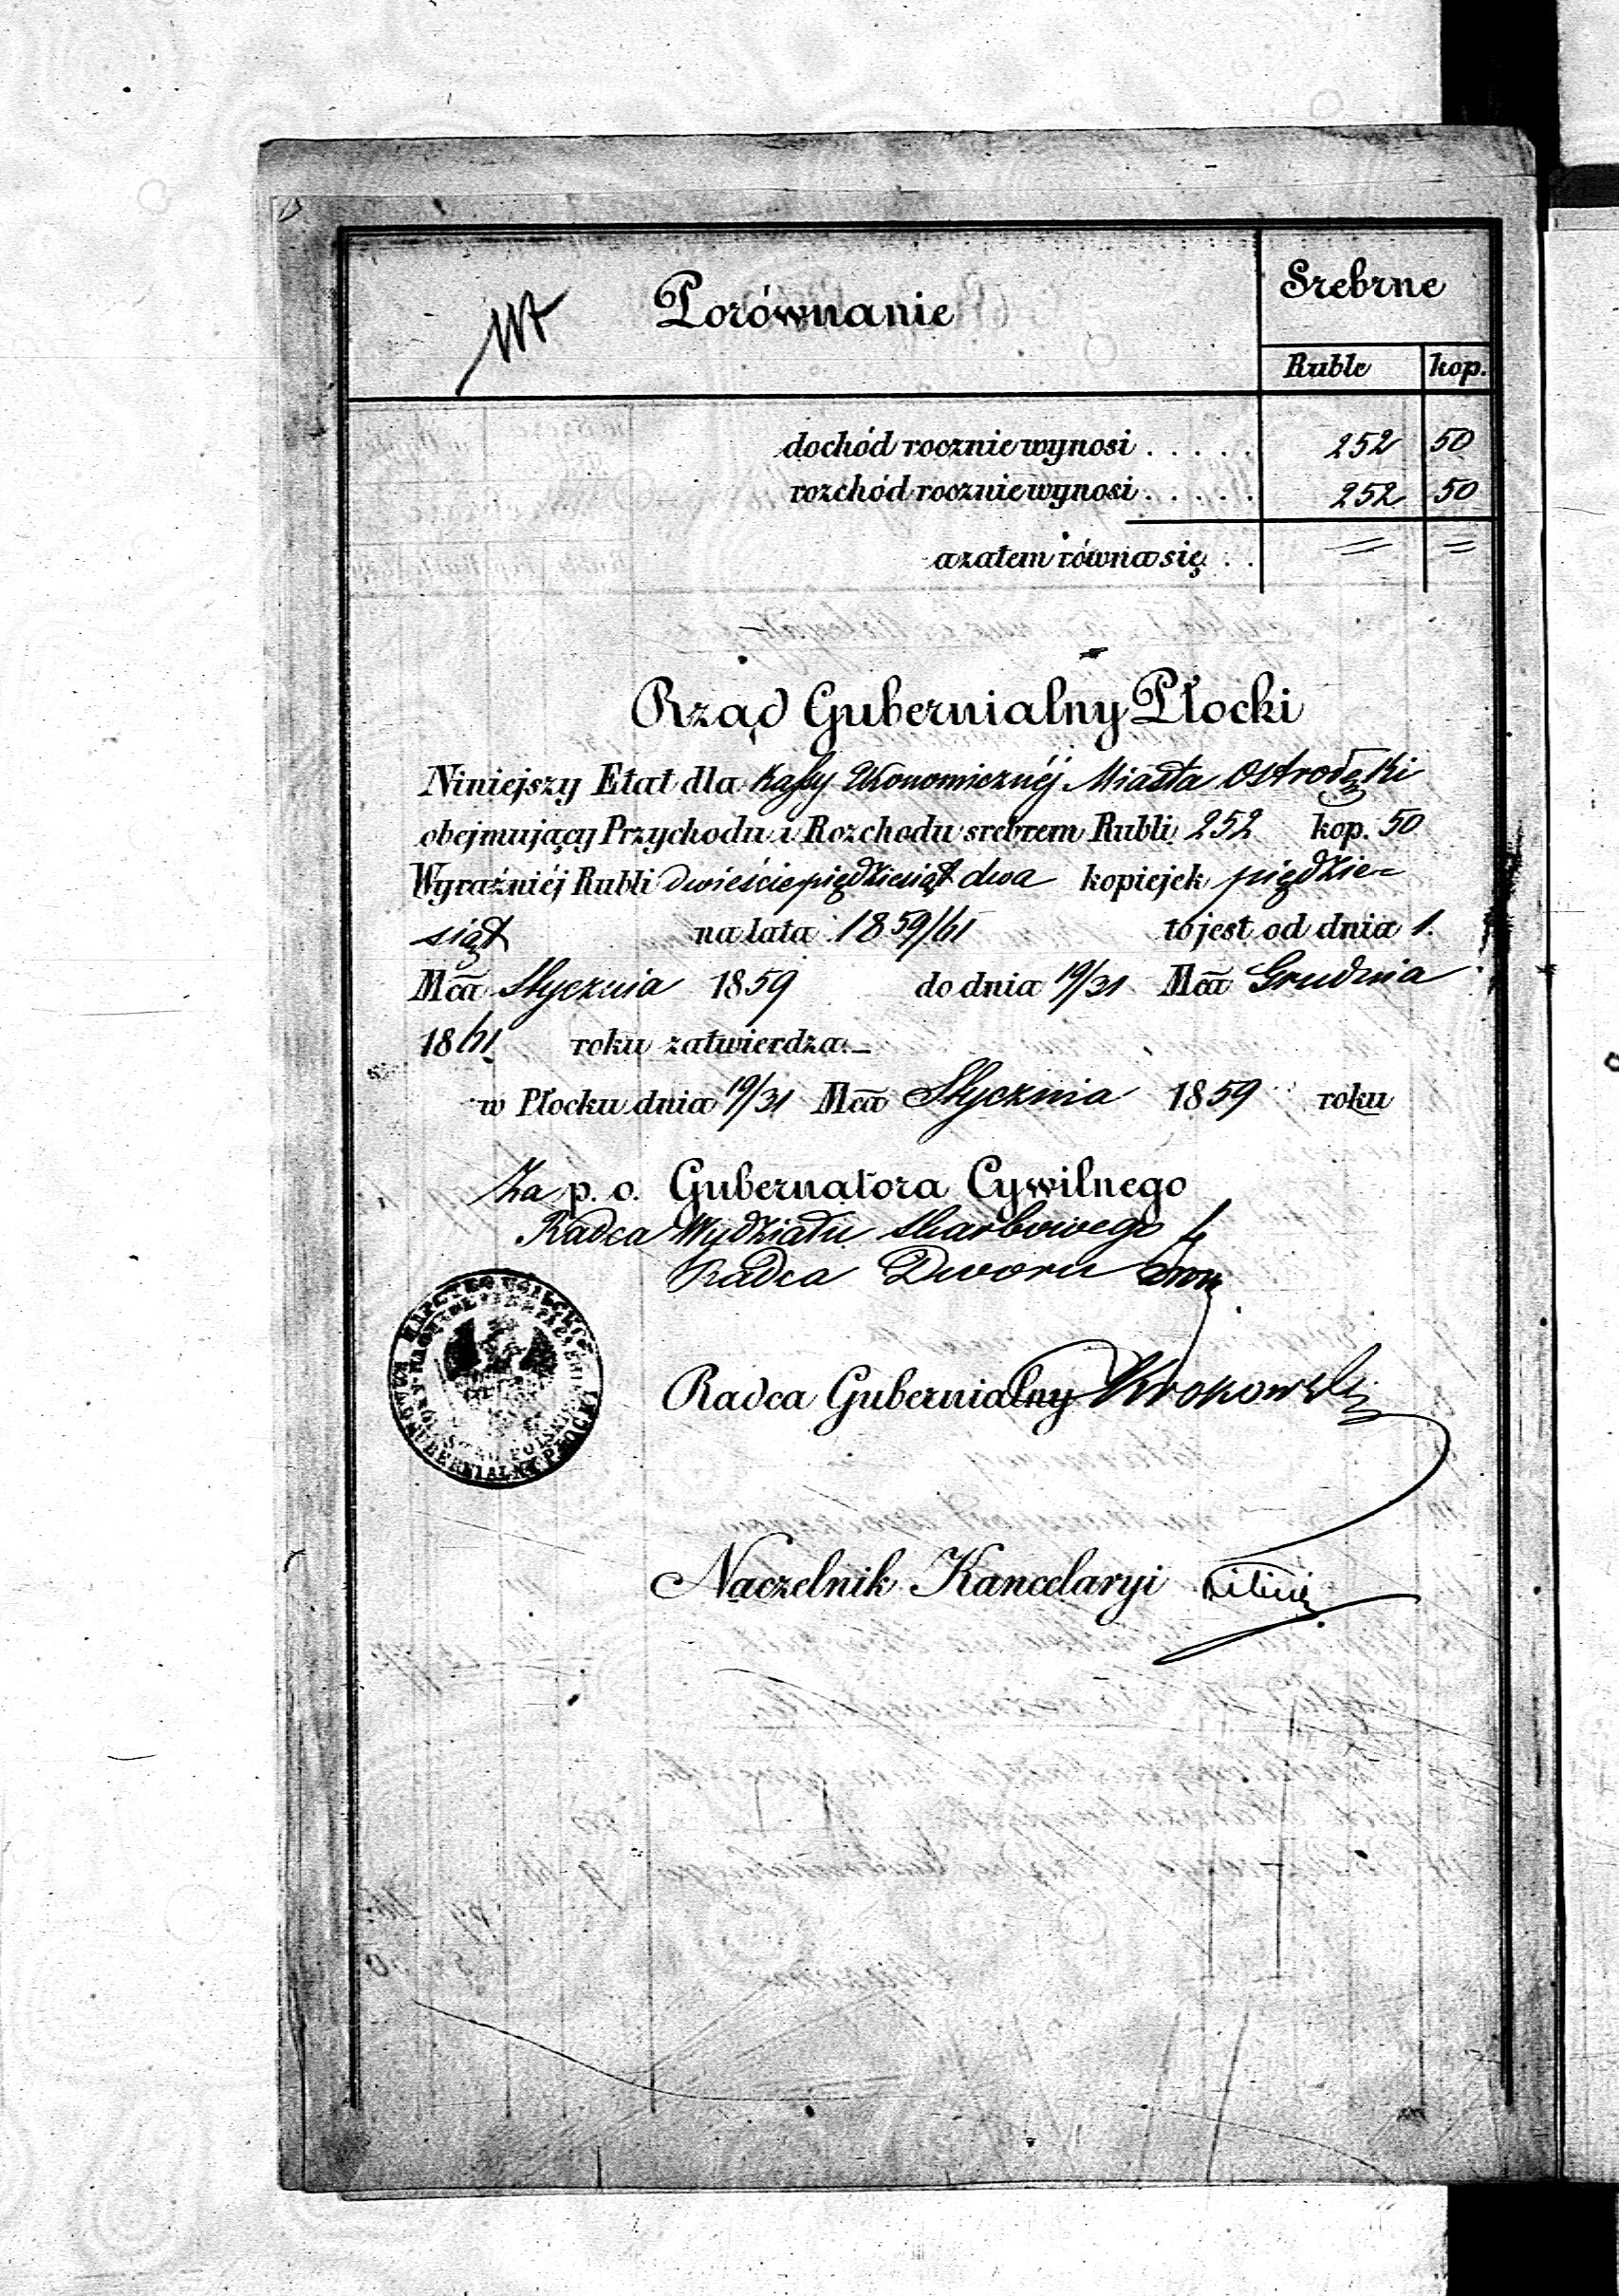 Porównanie
Srebrne
Ruble kop.
dochód rocznie wynosi . . . . . 252 50
rozchód rocznie wynosi . . . . . 252 50
a zatem równa się . . = =
Rząd Gubernialny Płocki
Niniejszy Etat dla Kassy Ekonomicznéj Miasta Ostrołęki
obejmujący Przychodu i Rozchodu srebrem Rubli 252 kop. 50
Wyraźniéj Rubli dwieście piędziesiąt dwa kopiejek piędzie=
siąt na lata 1859/61 to jest od dnia 1.
Mca Stycznia 1859 do dnia 19/31 Mca Grudnia
1861 roku zatwierdza.—
w Płocku dnia 19/31 Mca Stycznia 1859 roku
Za p. o. Gubernatora Cywilnego
Radca Wydziału Skarbowego
Radca Dworu
Radca Gubernialny Krokowski
Naczelnik Kancelaryi
GUBERNIALNY PŁOCKI